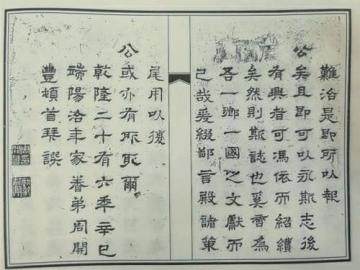 難治是即所以報
公矣且即可以永斯志後
有興者可馮依而紹續
矣然則斯誌也奚啻為
吾一鄉一國之文獻而
已哉爰綴鄙言殿諸策
尾用以復
公或亦有所取爾
乾隆二十有六年辛巳
端陽治年家眷弟周開
豐頓首拜譔